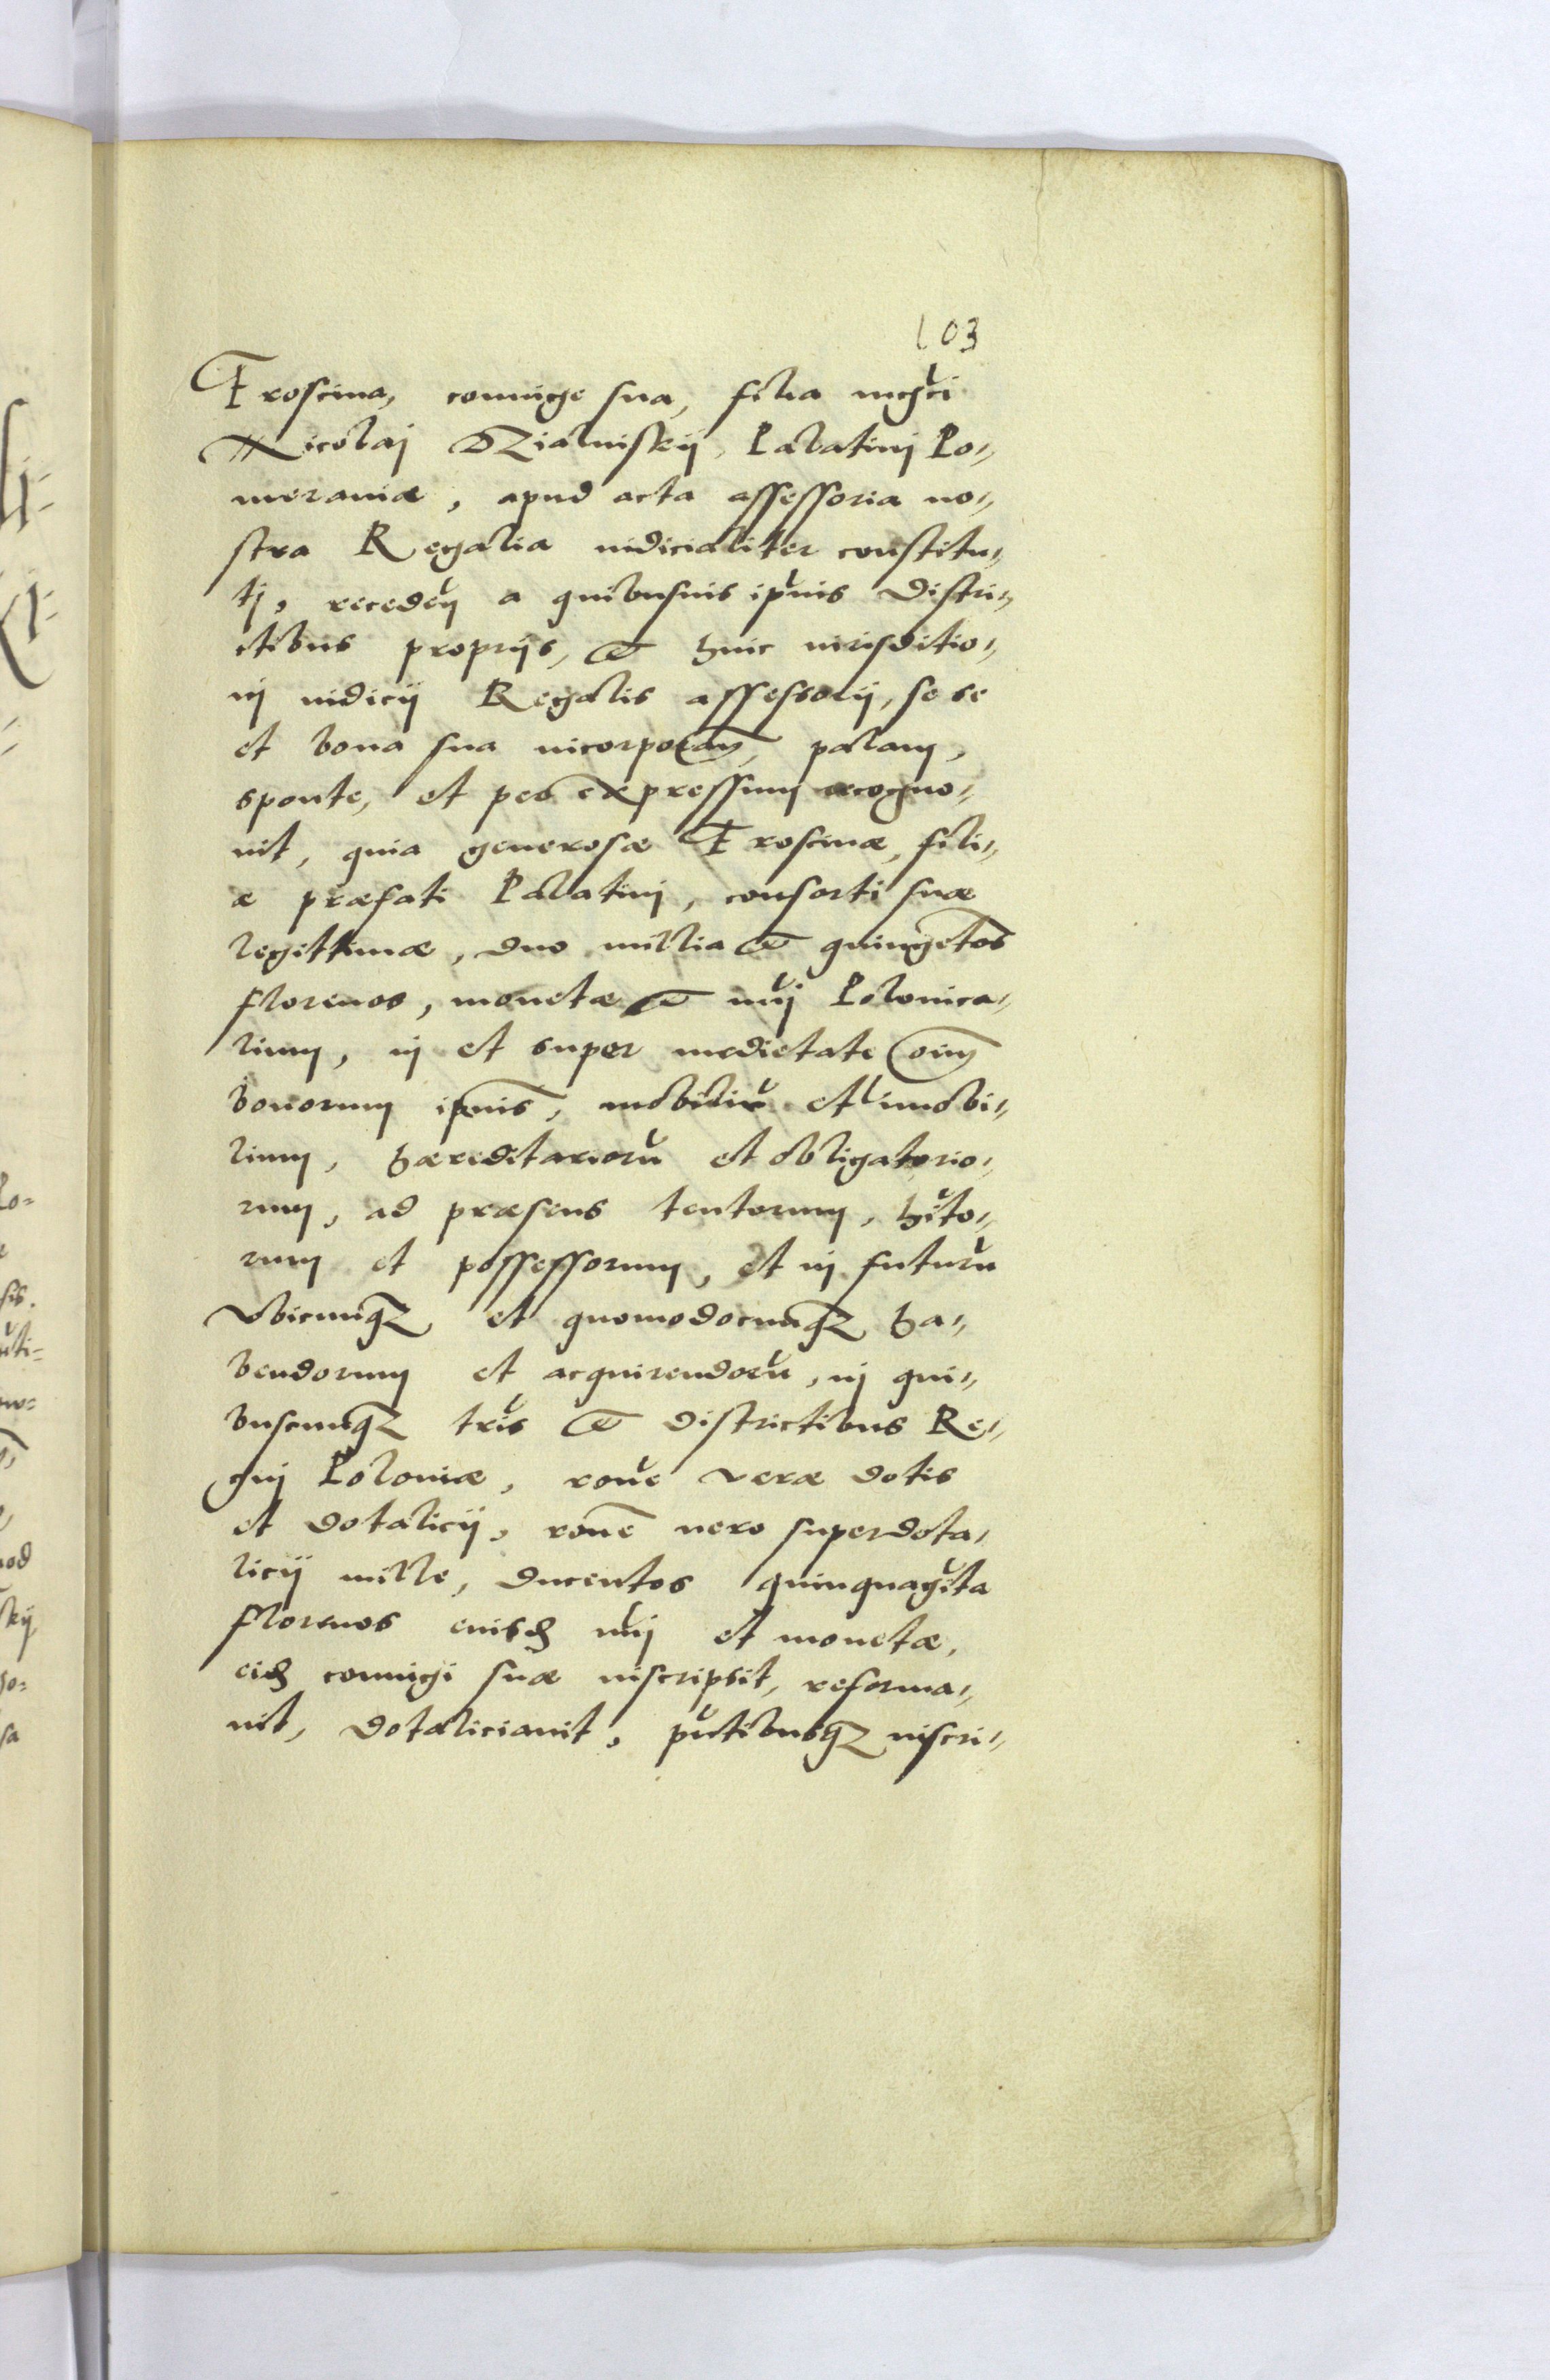 103
Froscina, coniuge sua, filia mgci
Nicolaj Dzialinskij, Palatinj Po„
meraniæ, apud acta assessoria no„
stra Regalia iudicialiter constitu„
tj, recedeñ a quibusuis ipius distri„
ctibus proprijs, et huic iurisditio„
nj iudicij Regalis assessorij, se se
et bona sua incorporañ, palam,
sponte, et per expressum recogno„
uit, quia generosæ Froscinæ, fili„
æ præfati Palatini, consorti suæ
legittimæ, duo millia et quingetos
florenos, monetæ et nuj Polonica„
lium, in et super medietate oim
bonorum ipius, mobiliu et imobi„
lium, hæreditarioru et obligatorio„
rum, ad præsens tentorum, hito„
rum et possessorum, et in futuru
vbicunqz et quomodocunqz ha„
bendorum et acquirendoru, in qui„
buscunqz tris et districtibus Re„
gnj Poloniæ, rone veræ dotis
et dotalicij, rone uero superdota„
licij mille, ducentos quinquagita
florenos eiusd nuj et monetæ,
eid coniugi suæ inscripsit, reforma„
uit, dotaliciauit, pntibusqz inscri„